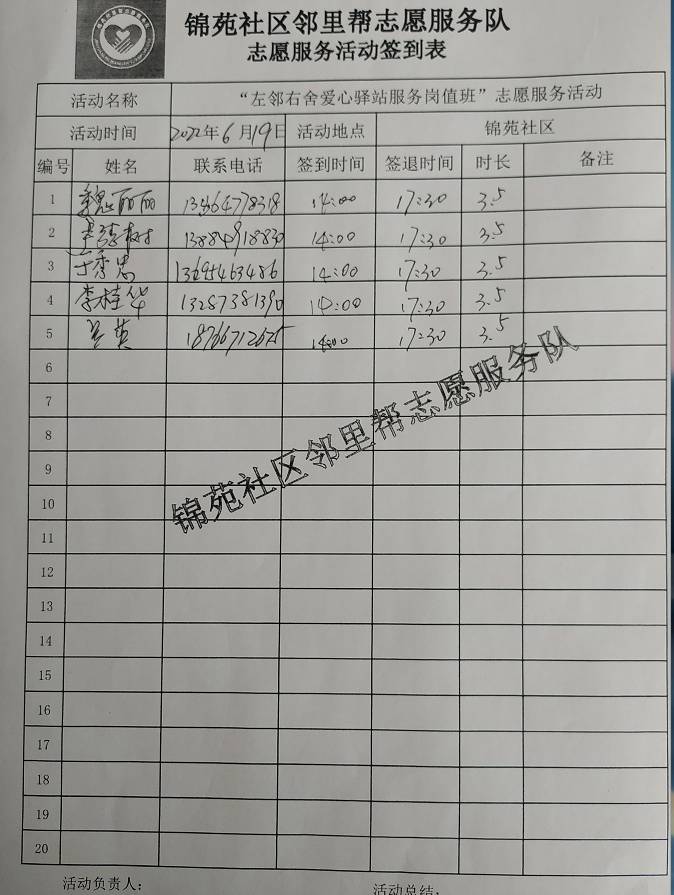 锦苑社区邻里帮志愿服务队
志愿服务活动签到表
活动名称 “左邻右舍爱心驿站服务岗值班”志愿服务活动
活动时间 2022年6月19日 活动地点 锦苑社区
编号 姓名 联系电话 签到时间 签退时间 时长 备注
1 魏丽丽 13464778318 14:00 17:30 3.5
2 13884918830 14:00 17:30 3.5
3 于秀忠 13695463486 14:00 17:30 3.5
4 李桂华 13287381390 14:00 17:30 3.5
5 14:00 17:30 3.5
6
7
8
锦苑社区邻里帮志愿服务队
9
10
11
12
13
14
15
16
17
18
19
20
活动负责人: 活动总结: